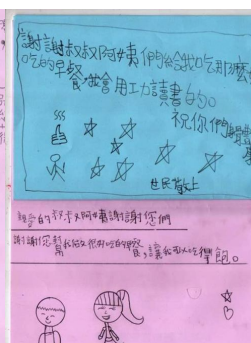 謝謝叔叔阿姨們給我吃那麼
吃的早餐,我會用工力讀書的。
祝你們
敬上
親愛的叔叔阿姨謝謝您們
謝謝您幫我們做很好吃的早餐,讓我可以吃得飽。